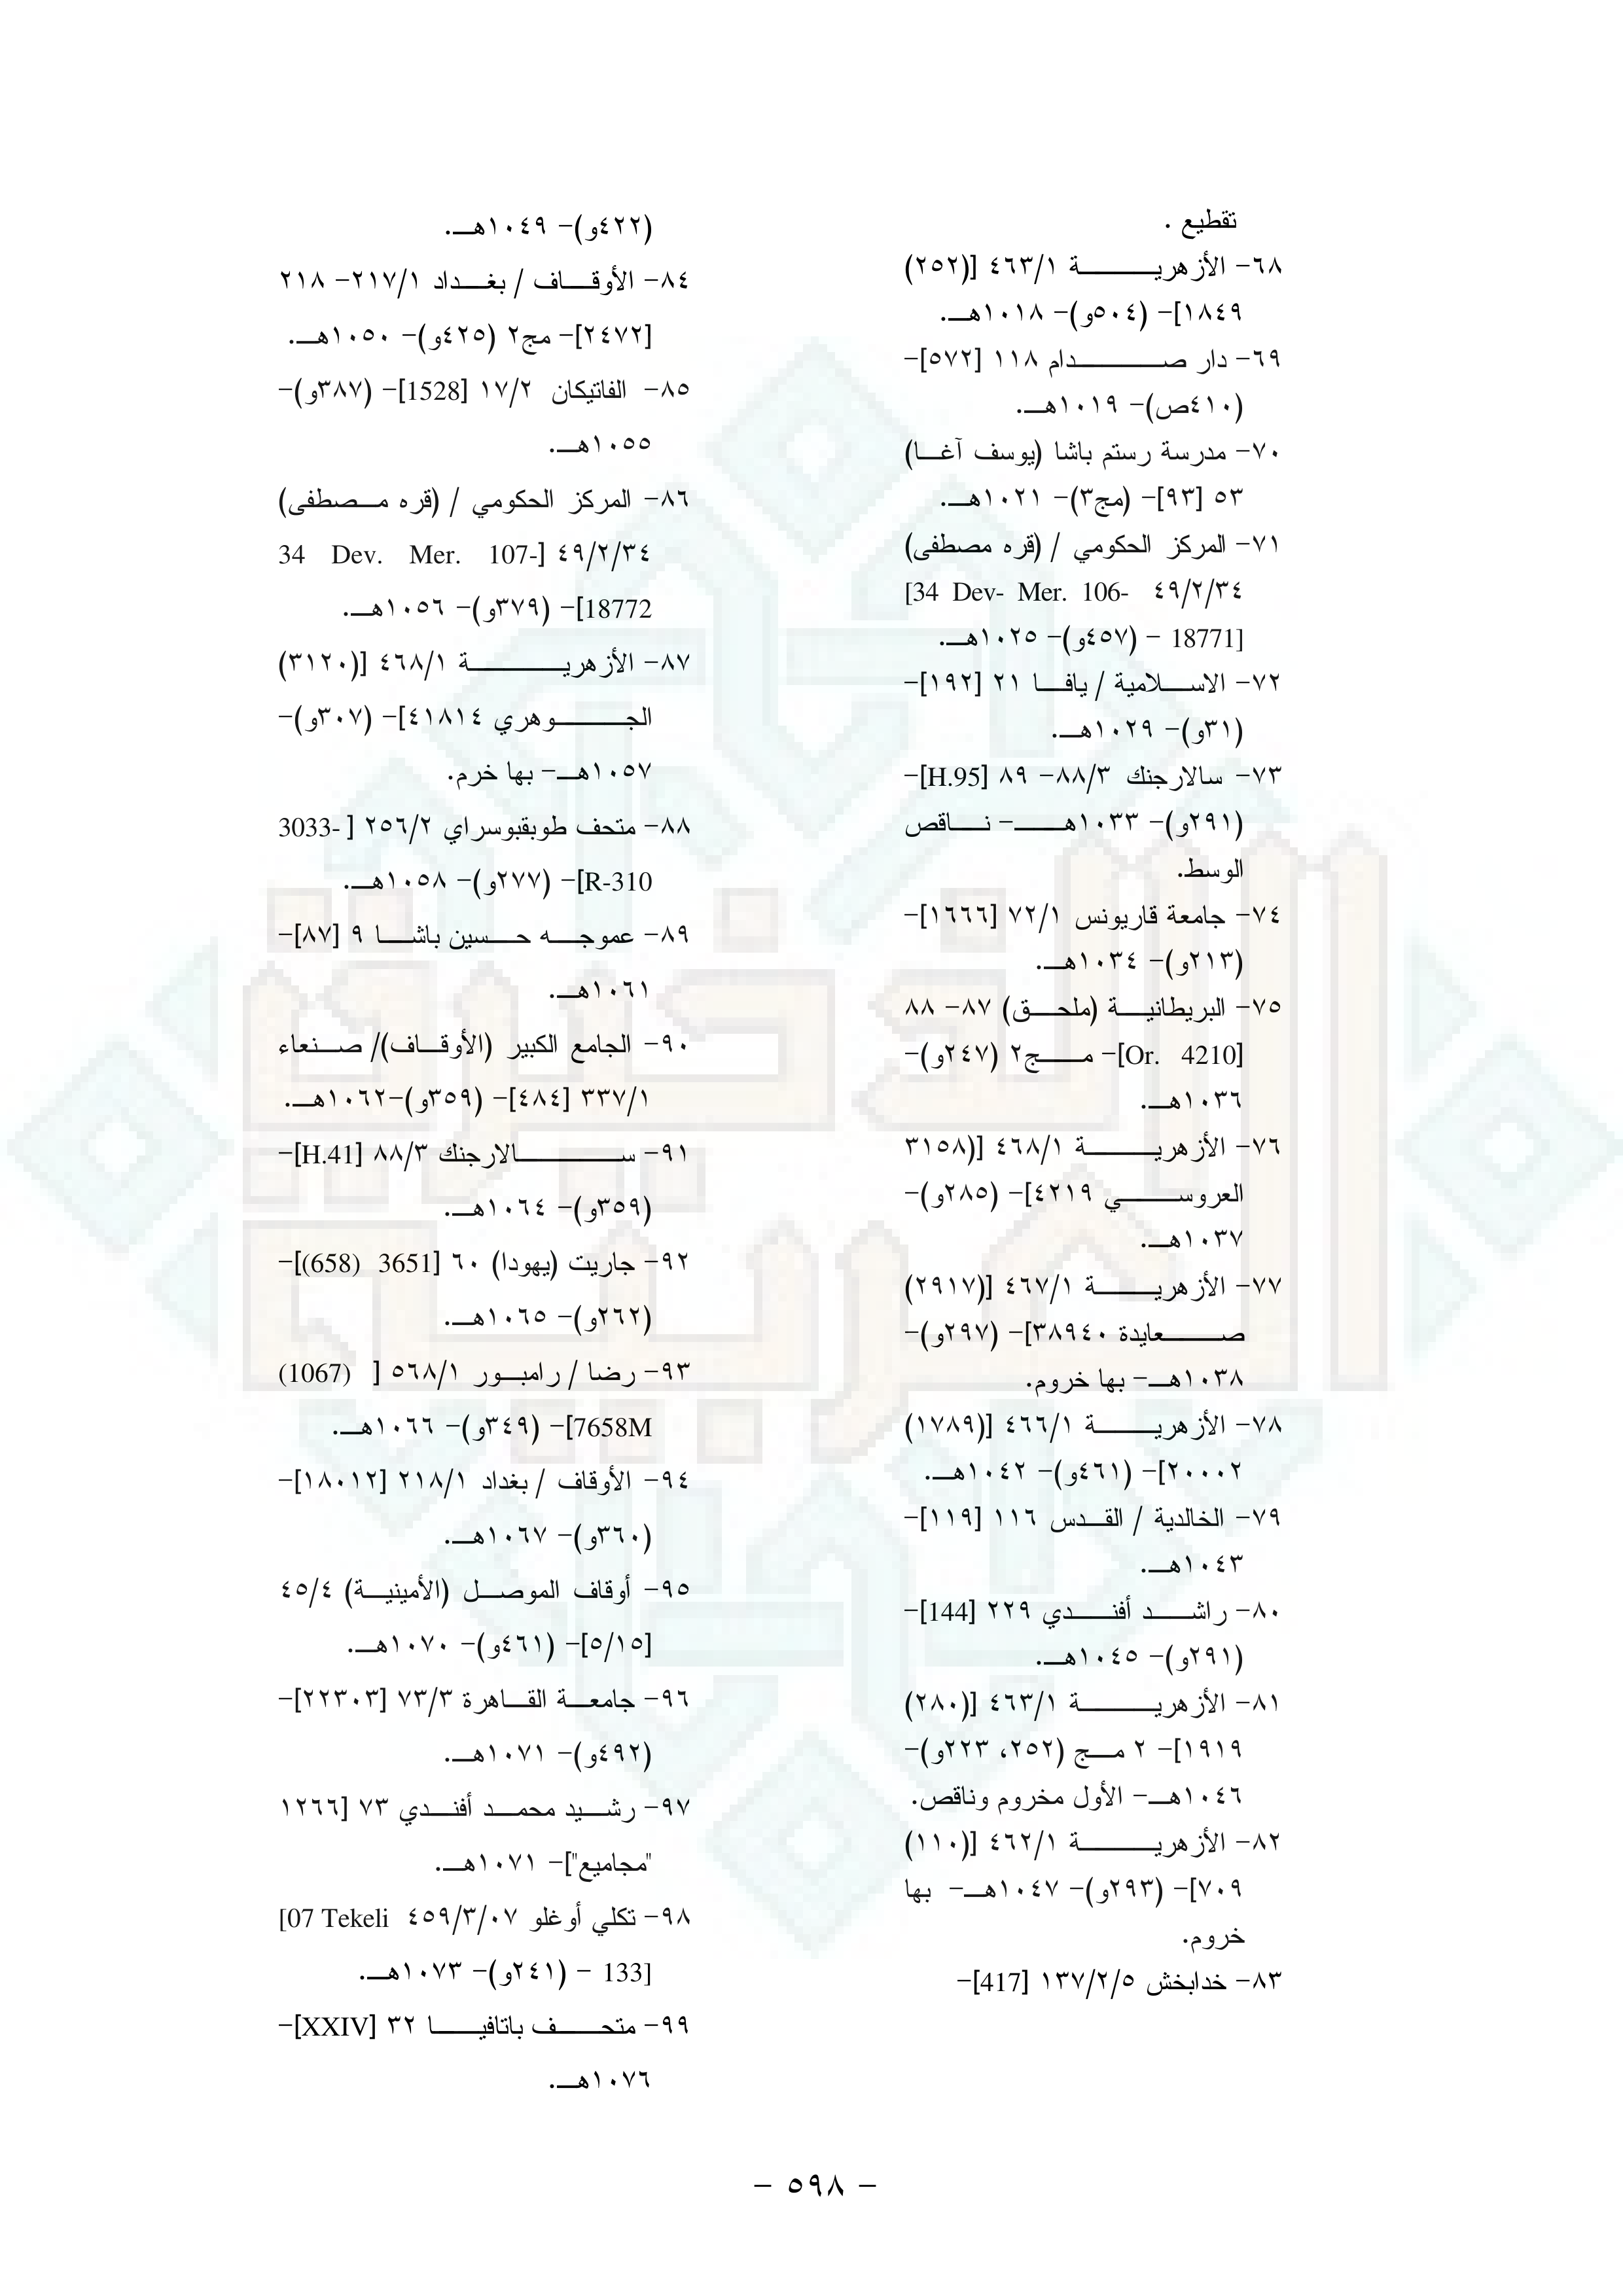 تقطيع .
٦٨- الأزهرية ٤٦٣/١ [(٢٥٢)
١٨٤٩]- (٥٠٤و)- ١٠١٨هـ.
٦٩- دار صدام ١١٨ [٥٧٢]-
(٤١٠ص)- ١٠١٩هـ.
٧٠- مدرسة رستم باشا (يوسف آغا)
٥٣ [٩٣]- (مج٣)- ١٠٢١هـ.
٧١- المركز الحكومي / (قره مصطفى)
٤٩/٢/٣٤ [34 Dev- Mer. 106-
18771] – (٤٥٧و)- ١٠٢٥هـ.
٧٢- الاسلامية / يافا ٢١ [١٩٢]-
(٣١و)- ١٠٢٩هـ.
٧٣- سالارجنك ٨٨/٣- ٨٩ [H.95]-
(٢٩١و)- ١٠٣٣هـ- ناقص
الوسط.
٧٤- جامعة قاريونس ٧٢/١ [١٦٦٦]-
(٢١٣و)- ١٠٣٤هـ.
٧٥- البريطانية (ملحق) ٨٧- ٨٨
[Or. 4210]- مج٢ (٢٤٧و)-
١٠٣٦هـ.
٧٦- الأزهرية ٤٦٨/١ [(٣١٥٨
العروسي ٤٢١٩]- (٢٨٥و)-
١٠٣٧هـ.
٧٧- الأزهرية ٤٦٧/١ [(٢٩١٧)
صعايدة ٣٨٩٤٠]- (٢٩٧و)-
١٠٣٨هـ- بها خروم.
٧٨- الأزهرية ٤٦٦/١ [(١٧٨٩)
٢٠٠٠٢]- (٤٦١و)- ١٠٤٢هـ.
٧٩- الخالدية / القدس ١١٦ [١١٩]-
١٠٤٣هـ.
٨٠- راشد أفندي ٢٢٩ [144]-
(٢٩١و)- ١٠٤٥هـ.
٨١- الأزهرية ٤٦٣/١ [(٢٨٠)
١٩١٩]- ٢ مج (٢٥٢، ٢٢٣و)-
١٠٤٦هـ- الأول مخروم وناقص.
٨٢- الأزهرية ٤٦٢/١ [(١١٠)
٧٠٩]- (٢٩٣و)- ١٠٤٧هـ- بها
خروم.
٨٣- خدابخش ١٣٧/٢/٥ [417]-
(٤٢٢و)- ١٠٤٩هـ.
٨٤- الأوقاف / بغداد ٢١٧/١- ٢١٨
[٢٤٧٢]- مج٢ (٤٢٥و)- ١٠٥٠هـ.
٨٥- الفاتيكان ١٧/٢ [1528]- (٣٨٧و)-
١٠٥٥هـ.
٨٦- المركز الحكومي / (قره مصطفى)
٤٩/٢/٣٤ [34 Dev. Mer. 107-
18772]- (٣٧٩و)- ١٠٥٦هـ.
٨٧- الأزهرية ٤٦٨/١ [(٣١٢٠)
الجوهري ٤١٨١٤]- (٣٠٧و)-
١٠٥٧هـ- بها خرم.
٨٨- متحف طوبقبوسراي ٢٥٦/٢ [3033-
R-310]- (٢٧٧و)- ١٠٥٨هـ.
٨٩- عموجه حسين باشا ٩ [٨٧]-
١٠٦١هـ.
٩٠- الجامع الكبير (الأوقاف)/ صنعاء
٣٣٧/١ [٤٨٤]- (٣٥٩و)-١٠٦٢هـ.
٩١- سالارجنك ٨٨/٣ [H.41]-
(٣٥٩و)- ١٠٦٤هـ.
٩٢- جاريت (يهودا) ٦٠ [3651 (658)]-
(٢٦٢و)- ١٠٦٥هـ.
٩٣- رضا / رامبور ٥٦٨/١ [(1067)
7658M]- (٣٤٩و)- ١٠٦٦هـ.
٩٤- الأوقاف / بغداد ٢١٨/١ [١٨٠١٢]-
(٣٦٠و)- ١٠٦٧هـ.
٩٥- أوقاف الموصل (الأمينية) ٤٥/٤
[٥/١٥]- (٤٦١و)- ١٠٧٠هـ.
٩٦- جامعة القاهرة ٧٣/٣ [٢٢٣٠٣]-
(٤٩٢و)- ١٠٧١هـ.
٩٧- رشيد محمد أفندي ٧٣ [١٢٦٦
"مجاميع"]- ١٠٧١هـ.
٩٨- تكلي أوغلو ٤٥٩/٣/٠٧ [07 Tekeli
133] – (٢٤١و)- ١٠٧٣هـ.
٩٩- متحف باتافيا ٣٢ [XXIV]-
١٠٧٦هـ.
- ٥٩٨ -